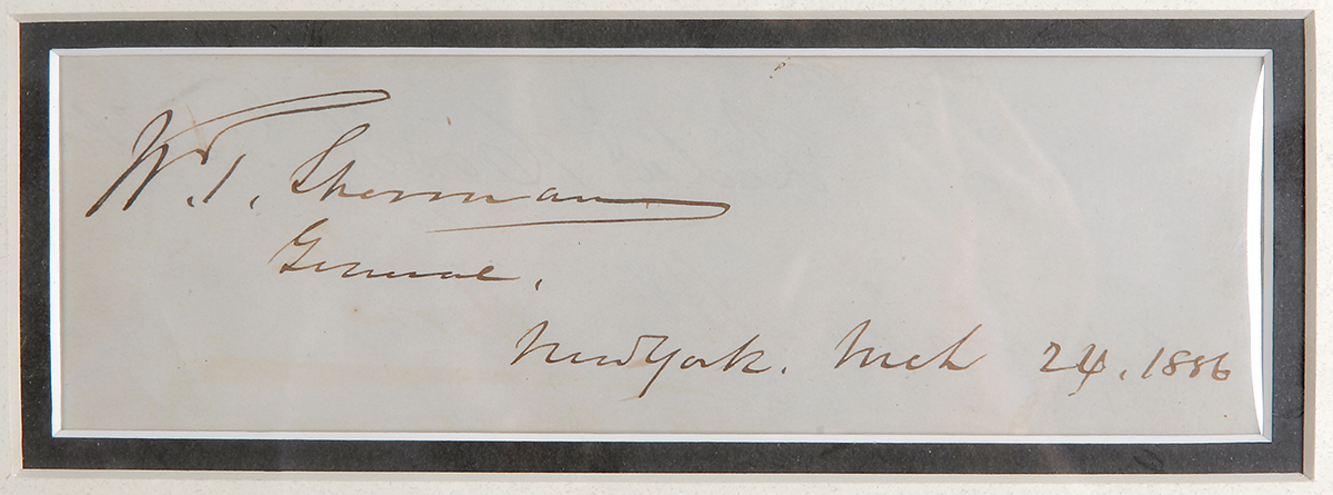 W. T. Sherman
General.
New York. Mch 24. 1886